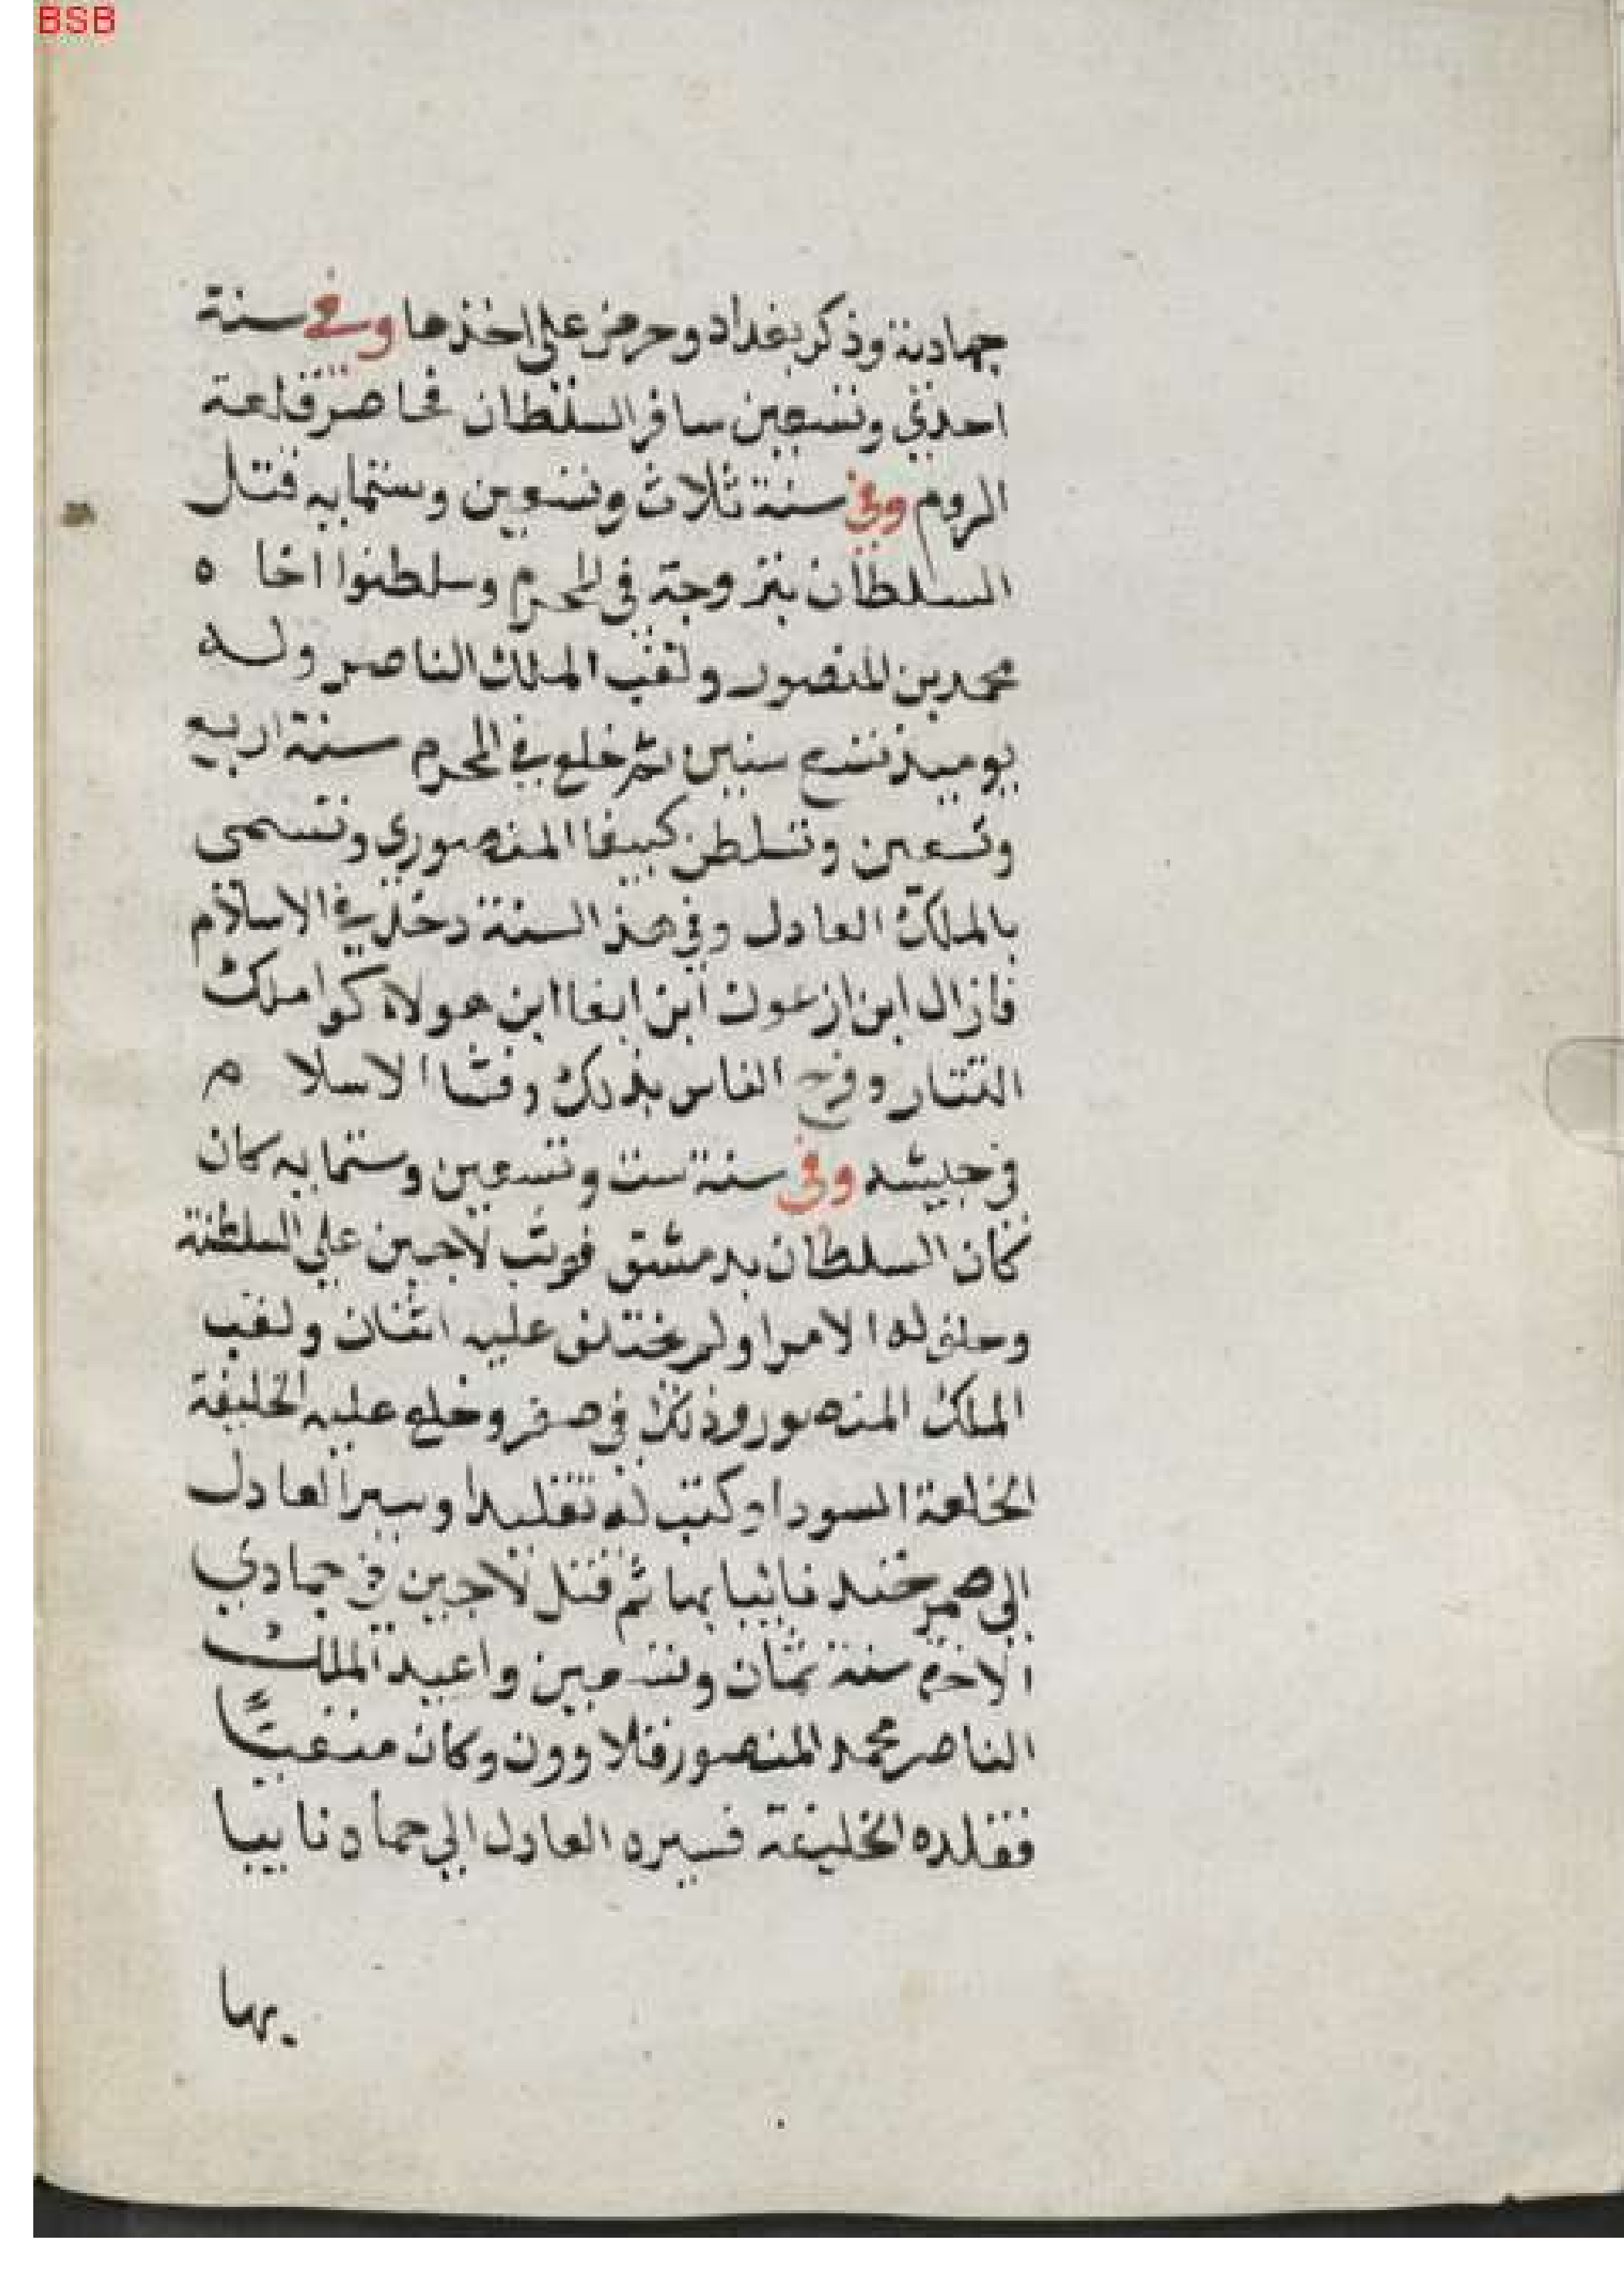 BSB
جهادية وذكر بغداد وحرض على اخذها وفي سنة
احدي وتسعين سافر السلطان فحاصر قلعة
الروم وفي سنة ثلاث وتسعين وستمايه قتل
السلطان بتروجة في المحرم وسلطنوا اخا ه
محمد بن المنصور ولقب الملك الناصر وله
يوميذ تسع سنين ثم خلع في المحرم سنة اربع
وتسعين وتسلطن كبيغا المنصوري وتسمى
بالملك العادل وفي هذ السنة دخل في الاسلام
قازال ابن ازغون ابن ابغا ابن هولاه كوا ملك
التتار وفرح الناس بذلك وفشا الاسلا م
في جيشه وفي سنة ست وتسعين وستمايه كان
كان السلطان بدمشق فوثب لاجين علي السلطنة
وحلف له الامرا ولم يختلف عليه اثنان ولقب
الملك المنصور وذلك في صفر وخلع عليه الخليفة
الخلعة السودا وكتب له تقليدا وسير العادل
الى صرخد نائبا بها ثم قتل لاجين في جمادي
الاخره سنة ثمان وتسعين واعيد الملك
الناصر محمد المنصور قلا وون وكان منفيا
فقلده الخليفة فسيره العادل الي حماه نايبا
بها